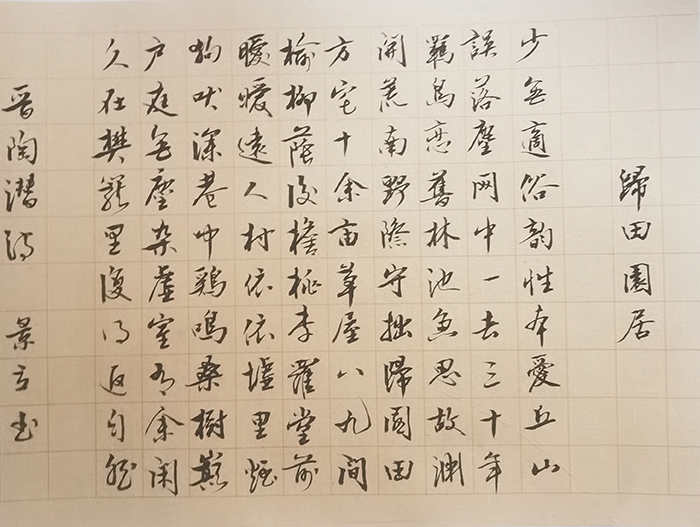 歸田園居
少無適俗韵性本愛丘山
誤落塵网中一去三十年
羈鳥戀舊林池魚思故淵
開荒南野際守拙歸園田
方宅十余亩草屋八九間
榆柳蔭後檐桃李羅堂前
曖曖遠人村依依墟里烟
狗吠深巷中鷄鳴桑樹巔
户庭無塵杂虚室有余闲
久在樊籠里復得返自然
晋陶潜詩 景云书